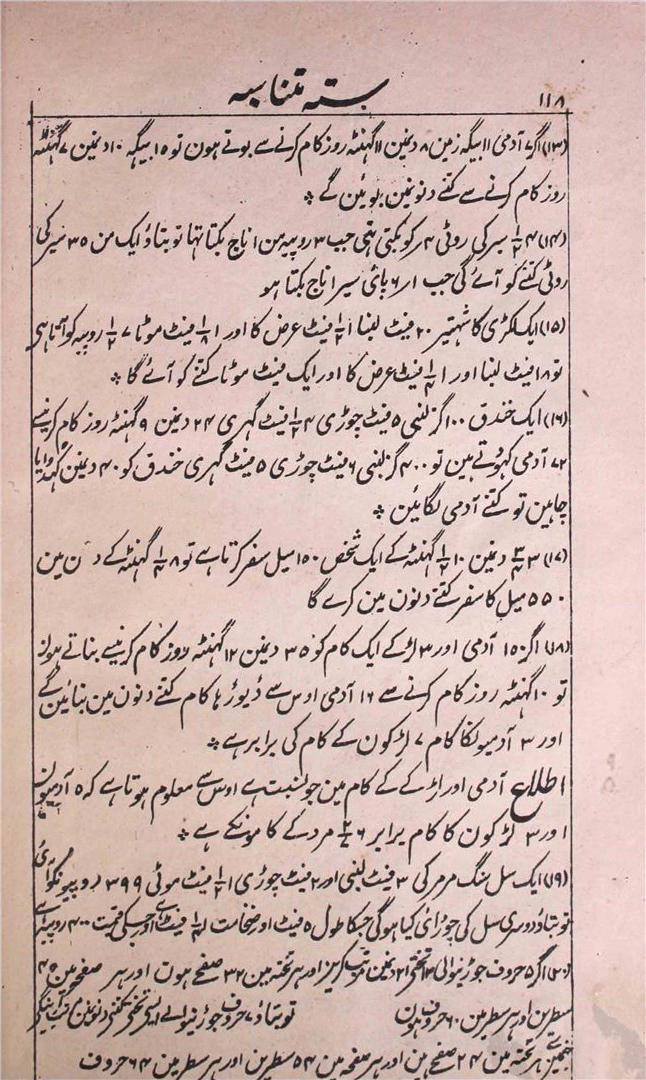 ۱۱۸
ستہ متناسبہ
(۱۳) اگر ۷ آدمی ۱۱ بیگہ زمین ۸ دنمین ۱۱ گھنٹہ روز کام کرنے سے بوتے ہون تو ۱۵ بیگہ ۱۰ دنمین ۷ گھنٹہ
روز کام کرنے سے کتنے دنونمین بوئین گے *
(۱۴) ۴ ۱/۲ سیر کی روٹی ۴ر کو بکتی تھی جب ۳ روپیہ من اناج بکتا تھا تو بتاؤ ایک من ۳۵ سیر کی
روٹی کتنے کو آئے گی جب ۱ر ۶ پائی سیر اناج بکتا ہو
(۱۵) ایک لکڑی کا شہتیر ۲۰ فیٹ لمبا ۱ ۱/۲ فیٹ عرض کا اور ۱ ۱/۸ فیٹ موٹا ۷ ۱/۲ روپیہ کو آتا ہی
تو ۱۸ فیٹ لمبا اور ۱ ۱/۴ فیٹ عرض کا اور ایک فیٹ موٹا کتنے کو آئے گا *
(۱۶) ایک خندق ۱۰۰ گز لنبی ۵ فیٹ چوڑی ۴ ۱/۲ فیٹ گہری ۲۴ دنمین ۹ گھنٹہ روز کام کرنیسے
۷۲ آدمی کھودتے ہین تو ۴۰۰ گز لنبی ۶ فیٹ چوڑی ۵ فیٹ گہری خندق کو ۴۰ دنمین کھدوایا
چاہین تو کتنے آدمی لگائین *
(۱۷) ۳ ۳/۴ دنمین ۱۰ ۱/۲ گھنٹہ کے ایک شخص ۱۵۰ میل سفر کرتا ہے تو ۸ ۱/۴ گھنٹہ کے دن مین
۵۵۰ میل کا سفر کتنے دنون مین کرے گا
(۱۸) اگر ۱۵ آدمی اور ۳ لڑکے ایک کام کو ۳۵ دنمین ۱۲ گھنٹہ روز کام کرنیسے بناتے ہون
تو ۱۰ گھنٹہ روز کام کرنے سے ۱۶ آدمی اوس سے ڈیوڑہا کام کتنے دنون مین بنائین گے
اور ۳ آدمیونکا کام ۷ لڑکون کے کام کی برابر ہے *
اطلاع آدمی اور لڑکے کے کام مین جو نسبت ہے اوس سے معلوم ہوتا ہے کہ ۱۵ آدمیون
اور ۳ لڑکون کا کام برابر کے کام ہے *
(۱۹) ایک سل سنگ مرمر کی ۳ فیٹ لنبی اور ۲ فیٹ چوڑی ۱ ۱/۲ فیٹ موٹی ۳۹۹ روپیونکو آئی
تو بتاؤ دوسری سل کی چوڑائی کیا ہوگی جسکا طول ۵ فیٹ اور ضخامت فیٹ ہے اور جسکی قیمت ۴۰۰ روپیہ
(۲۰) اگر ۵ حروف جوڑنیوالی دنمین اور ہر تختہ مین ۳۲ صفحے ہون اور ہر صفحہ مین
سطرین اور ہر سطر مین ۶۰ حروف ہون تو بتاؤ ۷ حروف جوڑنیوالے ایسی تختی کتنی دنونمین
جنمین ہر تختہ مین ۲۴ صفحے ہین اور ہر صفحہ مین ۵۴ سطرین اور ہر سطر مین ۶۴ حروف